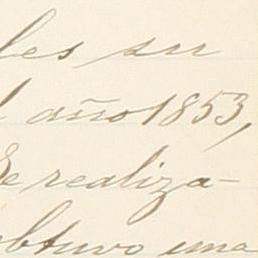 les su
l año 1853,
Se realiza-
obtuvo una